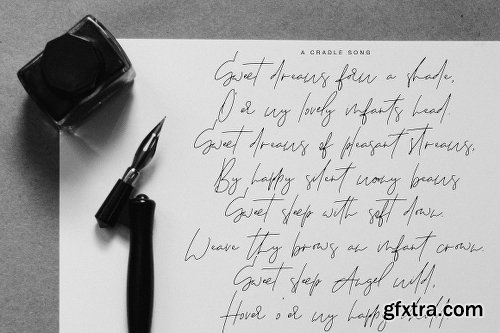 A CRADLE SONG
Sweet dreams form a shade,
O'er my lovely infants head.
Sweet dreams of pleasant streams,
By happy silent moony beams
Sweet sleep with soft down.
Weave thy brows an infant crown.
Sweet sleep Angel mild,
Hover o'er my happy child
gfxtra.com